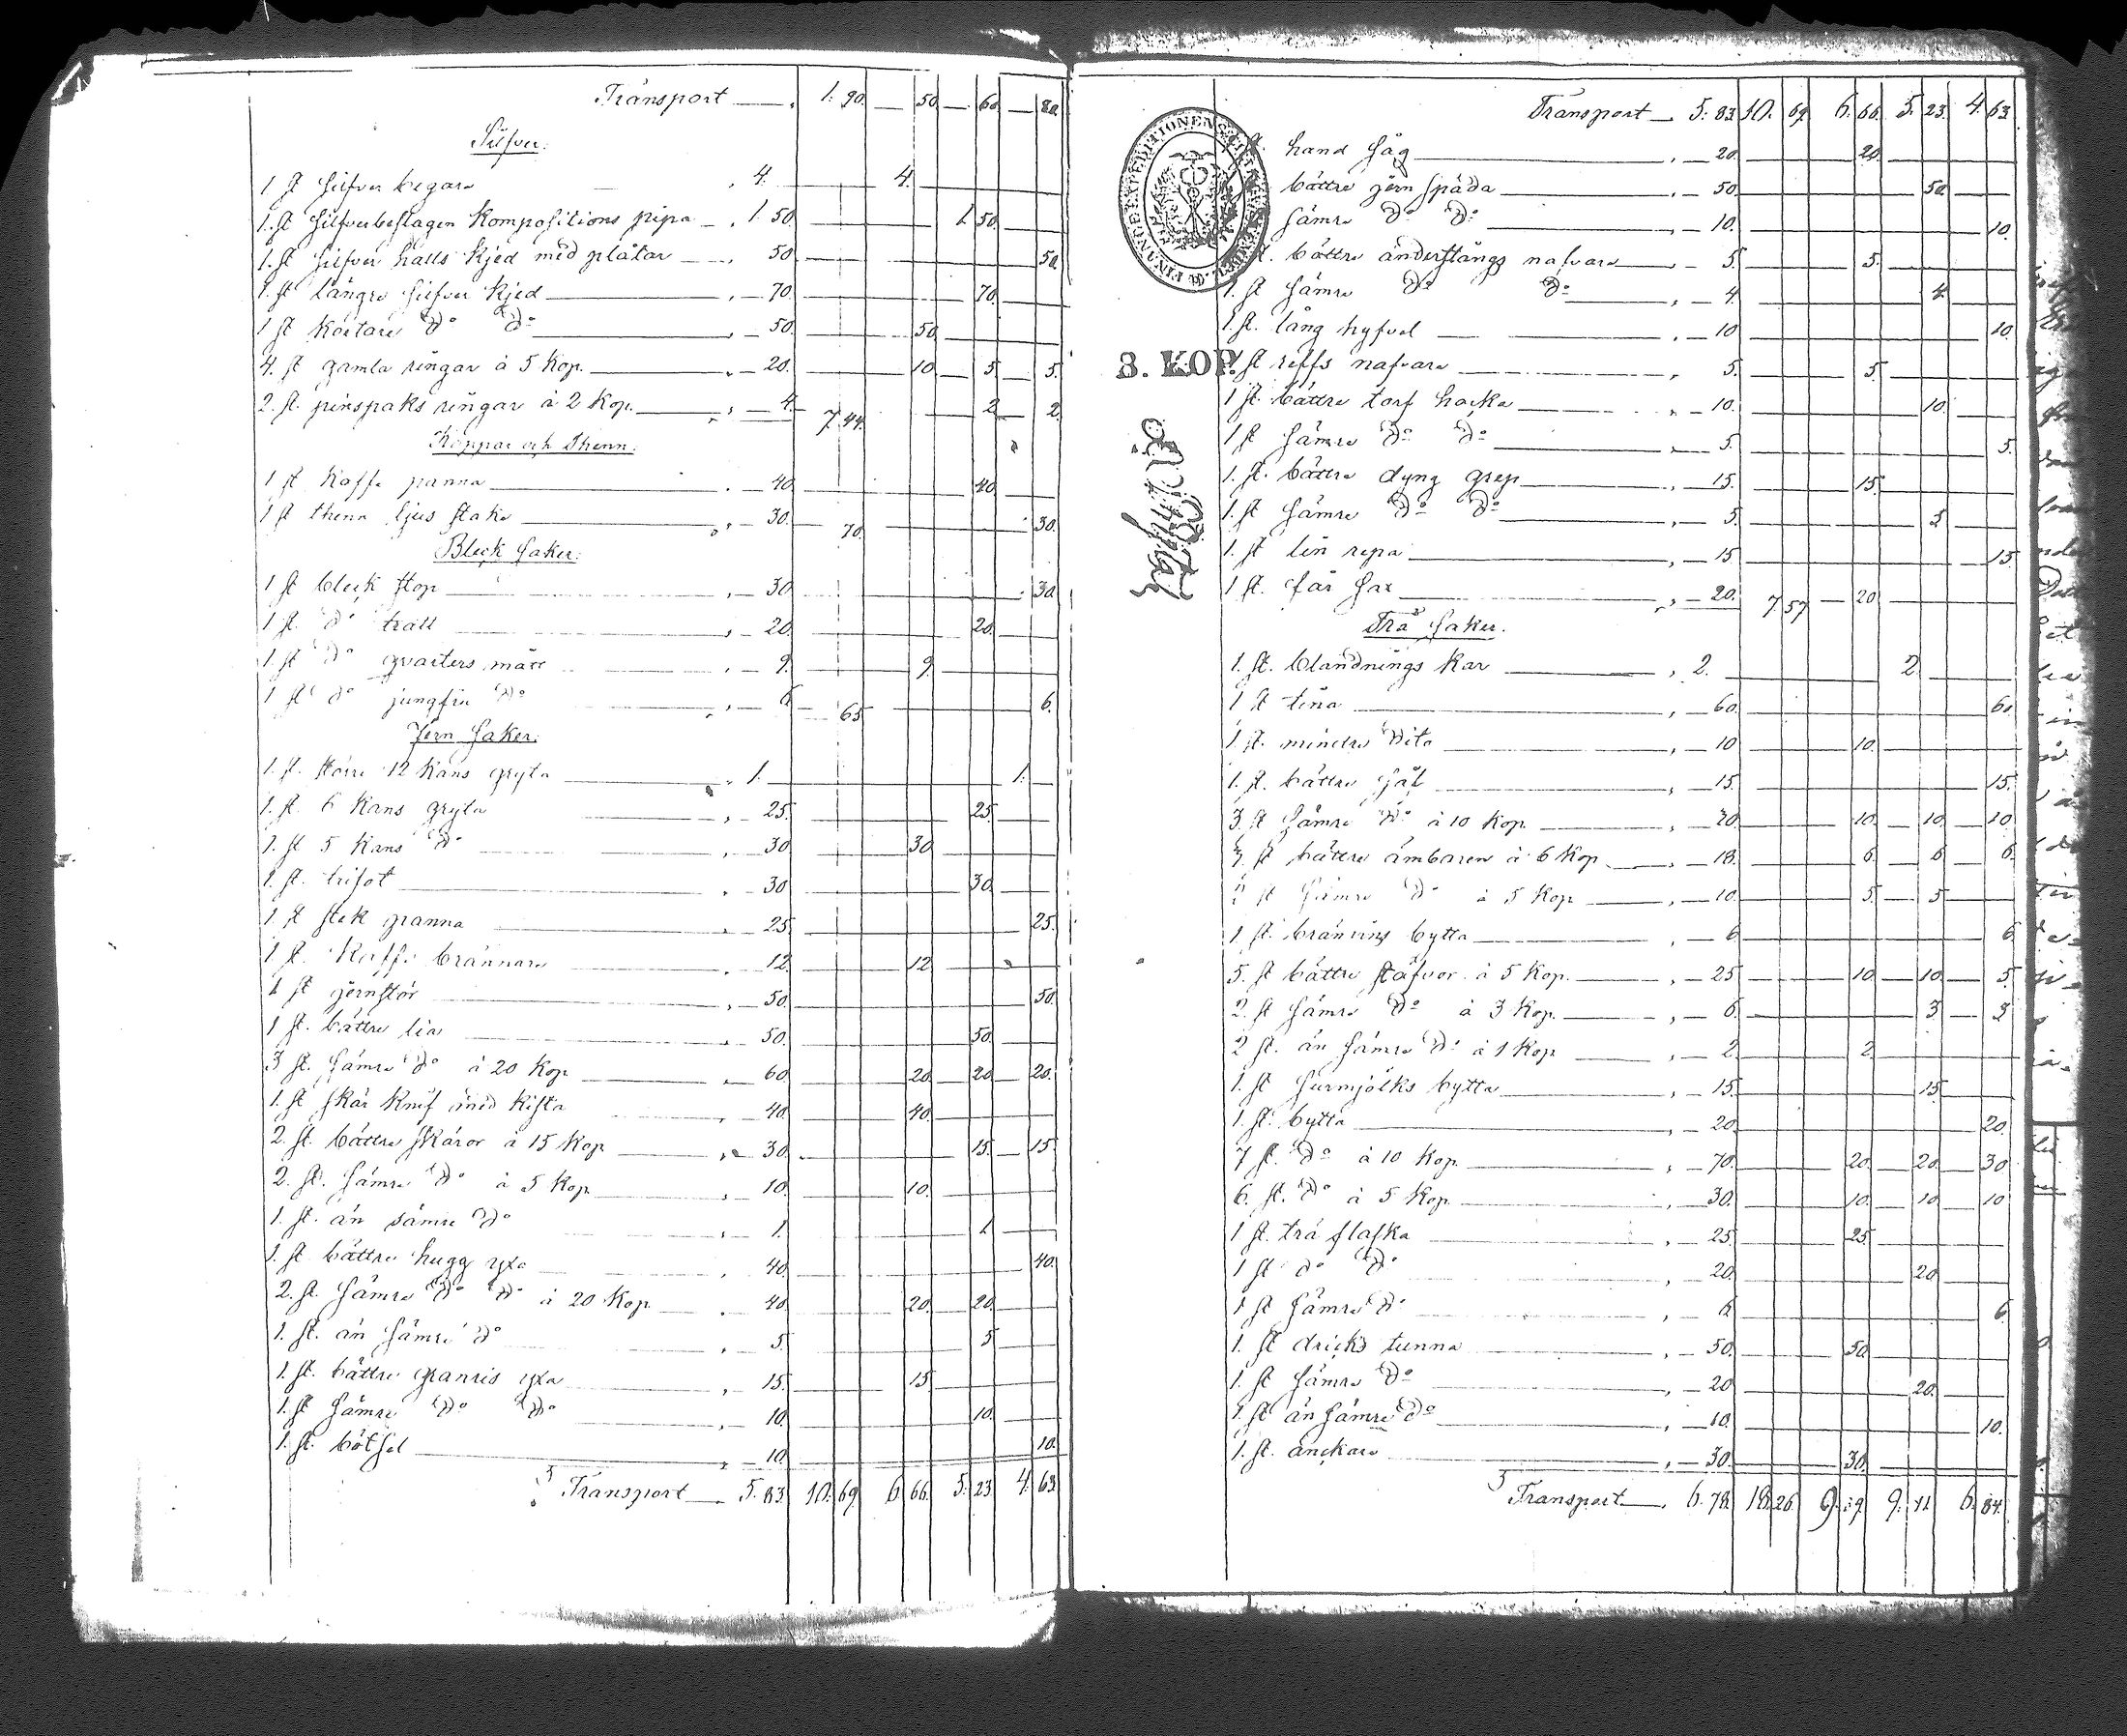 Transport 1. 90. 50. 60. 80.
Silfver:
1 st silfver begare 4. 4.
1. st silfverbeslagen Kompositions pipa 1. 50. 1. 50.
1. st silfver halls Kjed med plåtar 50. 50.
1. st längre silfver Kjed 70. 70.
1 st Kortare Do Do 50. 50.
4. st gamla ringar à 5 Kop. 20. 10. 5. 5.
2. st. pinspaks ringar à 2 Kop. 4. 7. 44. 2. 2.
Koppar och Thenn:
1 st Kaffe panna 40. 40.
1 st thenn ljus stake 30. 70. 30.
Bleck saker:
1 st bleck stop 30. 30.
1 st. do tratt 20. 20.
1. st Do qvarters mått 9. 9.
1 st do jungfru Do 6. 65. 6.
Jern saker:
1. st. större 12 Kans gryta 1. 1.
1. st. 6 Kans gryta 25. 25.
1. st 5 Kans Do 30. 30.
1. st. trifot 30. 30.
1. st stek panna 25. 25.
1 st. Kaffe brännare 12. 12.
1 st jernstör 50. 50.
1 st. bättre lia 50. 50.
3 st. sämre do à 20 Kop 60. 20. 20. 20.
1. st skär Knif med Kista 40. 40.
2. st. bättre skäror à 15 Kop 30. 15. 15.
2. st. sämre Do à 5 Kop 10. 10.
1. st. än sämre Do 1. 1.
1. st bättre hugg yxa 40. 40.
2. st sämre Do Do à 20 Kop 40. 20. 20.
1. st. än sämre do 5. 5
1. st. bättre granris yxa 15. 15.
1. st sämre Do Do 10. 10.
1. st. bötsel 10. 10.
Transport 5. 83. 10. 69. 6. 66. 5. 23. 4. 63.
Transport 5. 83. 10. 69. 6. 66. 5. 23. 4. 63.
hand såg 20. 20.
bättre jern spada 50. 50.
sämre Do Do 10. 10.
bättre änderstångs nafvare 5. 5.
1. st sämre Do Do 4 4.
1. st. lång hyfvel 10 10.
3. KOP.
st reffs nafvare 5. 5.
1 st. bättre torf hacka 10. 10.
1 st sämre Do Do 5. 5.
1. st. bättre dyng grep 15. 15.
1. st sämre Do Do 5. 5
1. st lin repa 15 15
1 st. får sax 20. 7. 57 20
Trä saker.
1. st. blandnings Kar 2. 2.
1 st tina 60. 60
1. st. mindre Dito 10 10.
1. st. bättre såt 15. 15.
3. st sämre Do à 10 Kop 30. 10. 10. 10
3. st bättre ämbaren à 6 Kop 18. 6. 6 6.
2 st sämre Do à 5 Kop 10. 5. 5
1 st. bränvins bytta 6 6
5. st bättre stäfvor à 5 Kop. 25 10. 10. 5.
2. st sämre Do à 3 Kop. 6. 3. 3
2 st. än sämre Do à 1 Kop 2. 2.
1. st surmjölks bytta 15. 15.
1. st. bytta 20. 20.
7 st. Do à 10 Kop. 70. 20. 20. 30
6. st. Do à 5 Kop. 30. 10. 10. 10
1 st. trä flaska 25. 25.
1 st do Do 20. 20
1 st sämre Do 6 6
1. st dricks tunna 50. 50.
1. st sämre Do 20 20.
1. st än sämre Do 10. 10.
1. st. anckare 30. 30.
Transport 6. 78. 18. 26 9. 19. 9. 11 6. 84.